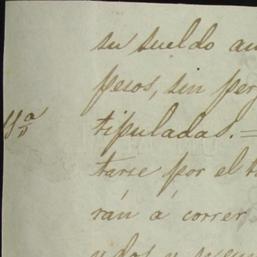 su sueldo
pesos, sin per
11ª
tipuladas. =
tarse por el t
rán á correr